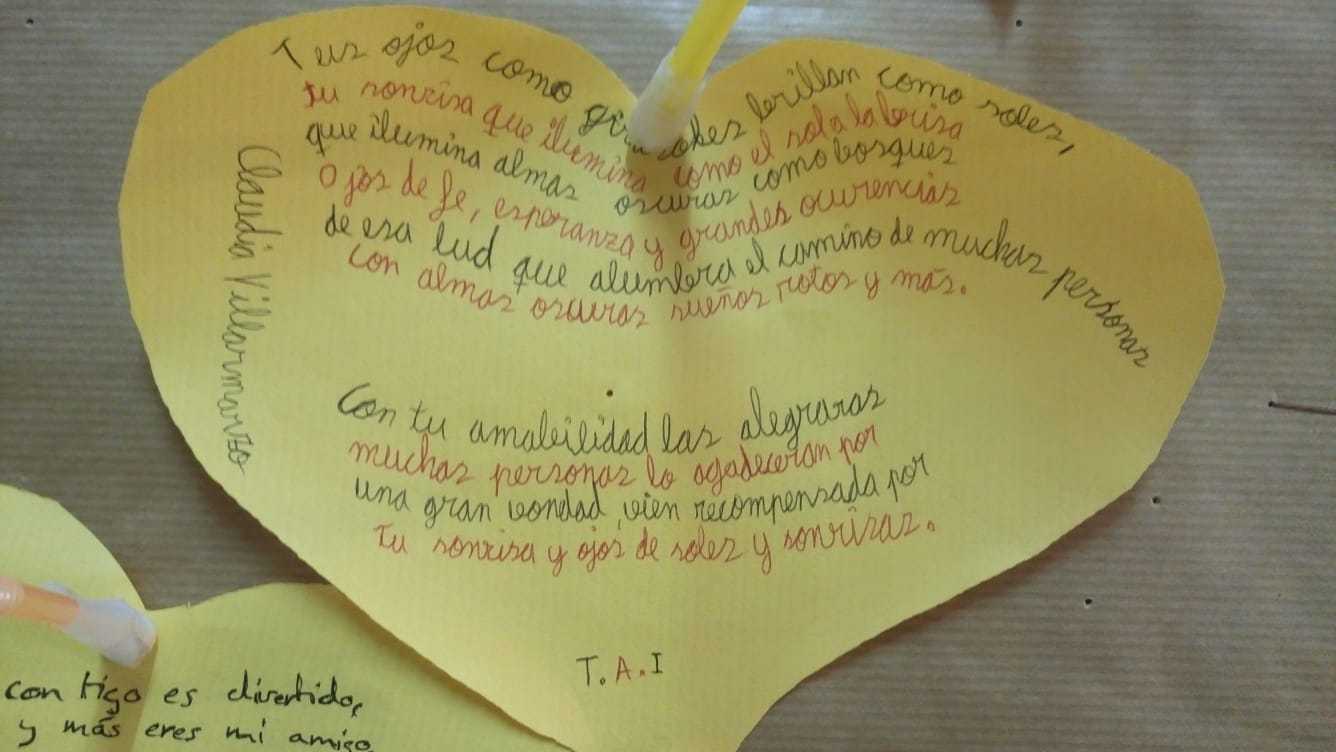 Tus ojos como girasoles brillan como soles,
tu sonrisa que ilumina como el sol a la brisa
que ilumina almas oscuras como bosques
Ojos de fe, esperanza y grandes ocurencias
de esa lud que alumbra el camino de muchas personas
con almas oscuras sueños rotos y más.
Con tu amabilidad las alegraras
muchas personas lo agadeceran por
una gran vondad, vien recompensada por
tu sonrisa y ojos de soles y sonrisas.
T.A.I
Claudia Villarmarzo
con tigo es divertido,
y más eres mi amigo